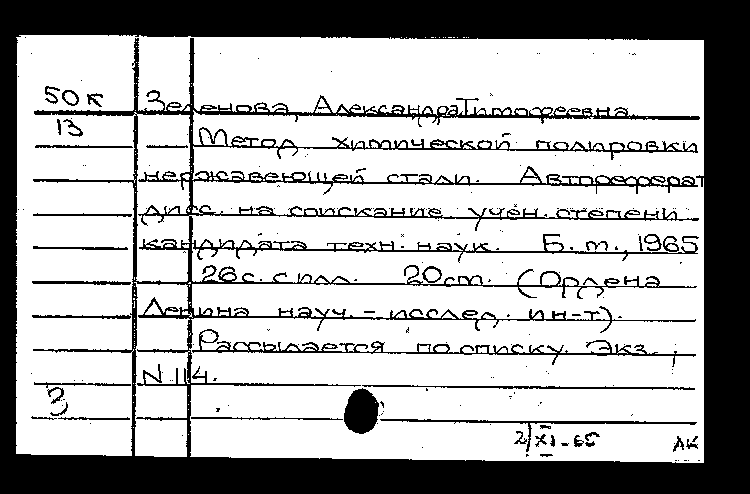 50к
13
Зеленова, Александра Тимофеевна
Метод химической полировки
нержавеющей стали. Автореферат
дисс. на соискание учен. степени
кандидата техн. наук. Б. м., 1965
26 с. с илл. 20 ст. (Ордена
Ленина науч. - исслед. ин-т).
Рассылается по списку. Экз.,
N 114.
З
2/XI-65
АК